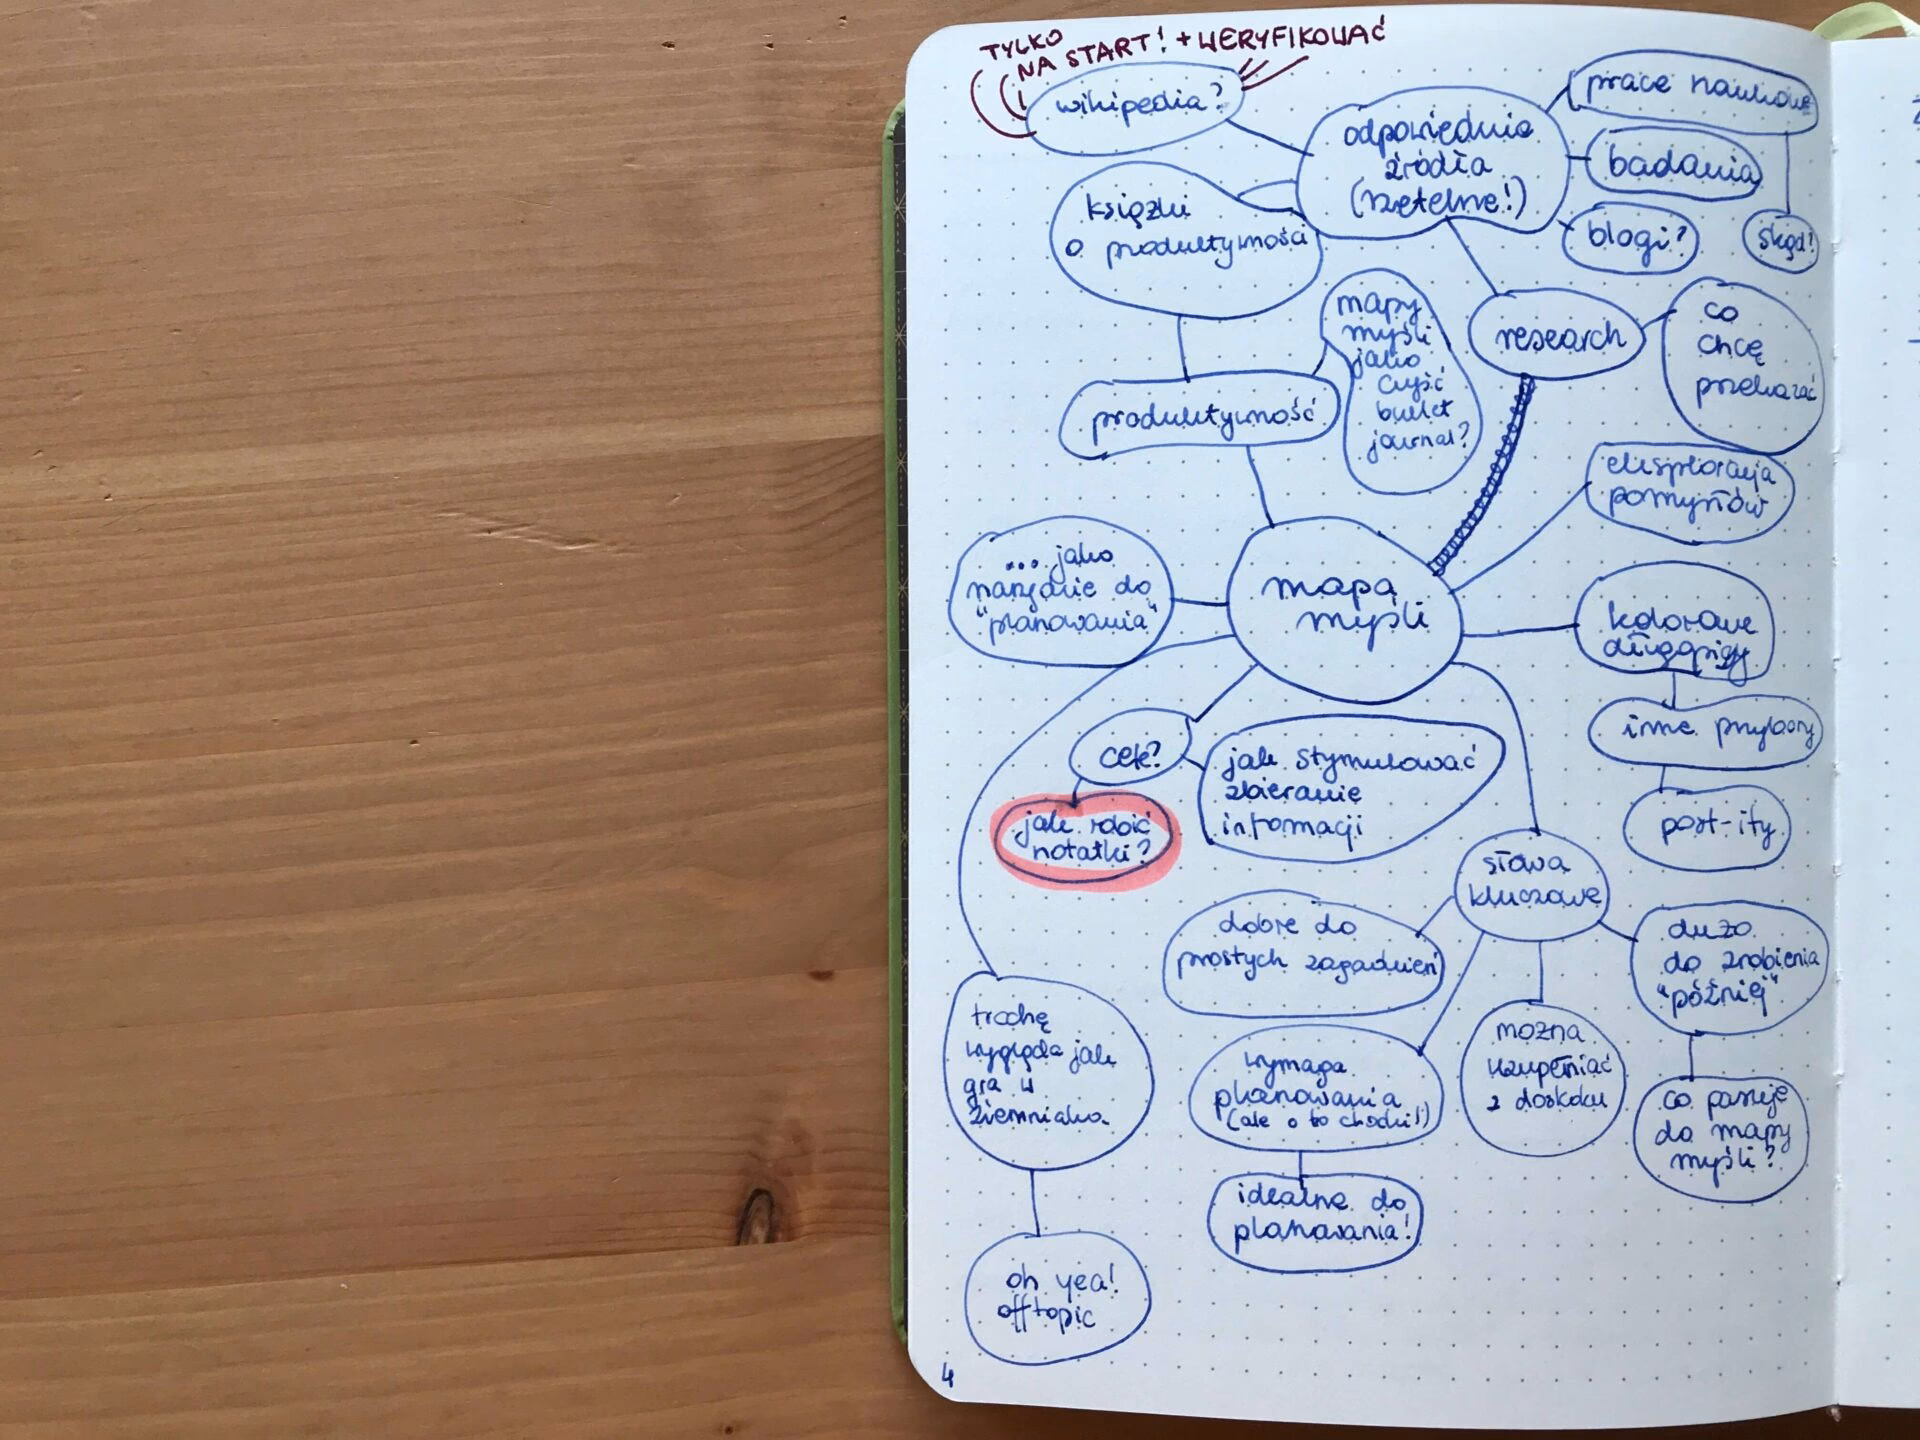 TYLKO
NA START! + WERYFIKOWAĆ
wikipedia?
odpowiednie
źródła
(rzetelne!)
prace naukowe
badania
blogi?
skąd!
książki
o produktywności
mapy
myśli
jako
część
bullet
journal?
research
co
chcę
przekazać
produktywność
eksploracja
pomysłów
... jako
narzędzie do
"planowania"
mapa
myśli
kolorowe
długopisy
inne przybory
post-ity
cele?
jak robić
notatki?
jak stymulować
zbieranie
informacji
słowa
kluczowe
dobre do
prostych zagadnień
dużo
do zrobienia
"później"
trochę
wygląda jak
gra w
ziemniaka.
wymaga
planowania
(ale o to chodzi!)
można
uzupełniać
z doskoku
co pasuje
do mapy
myśli?
idealne do
planowania!
oh yea!
offtopic
4